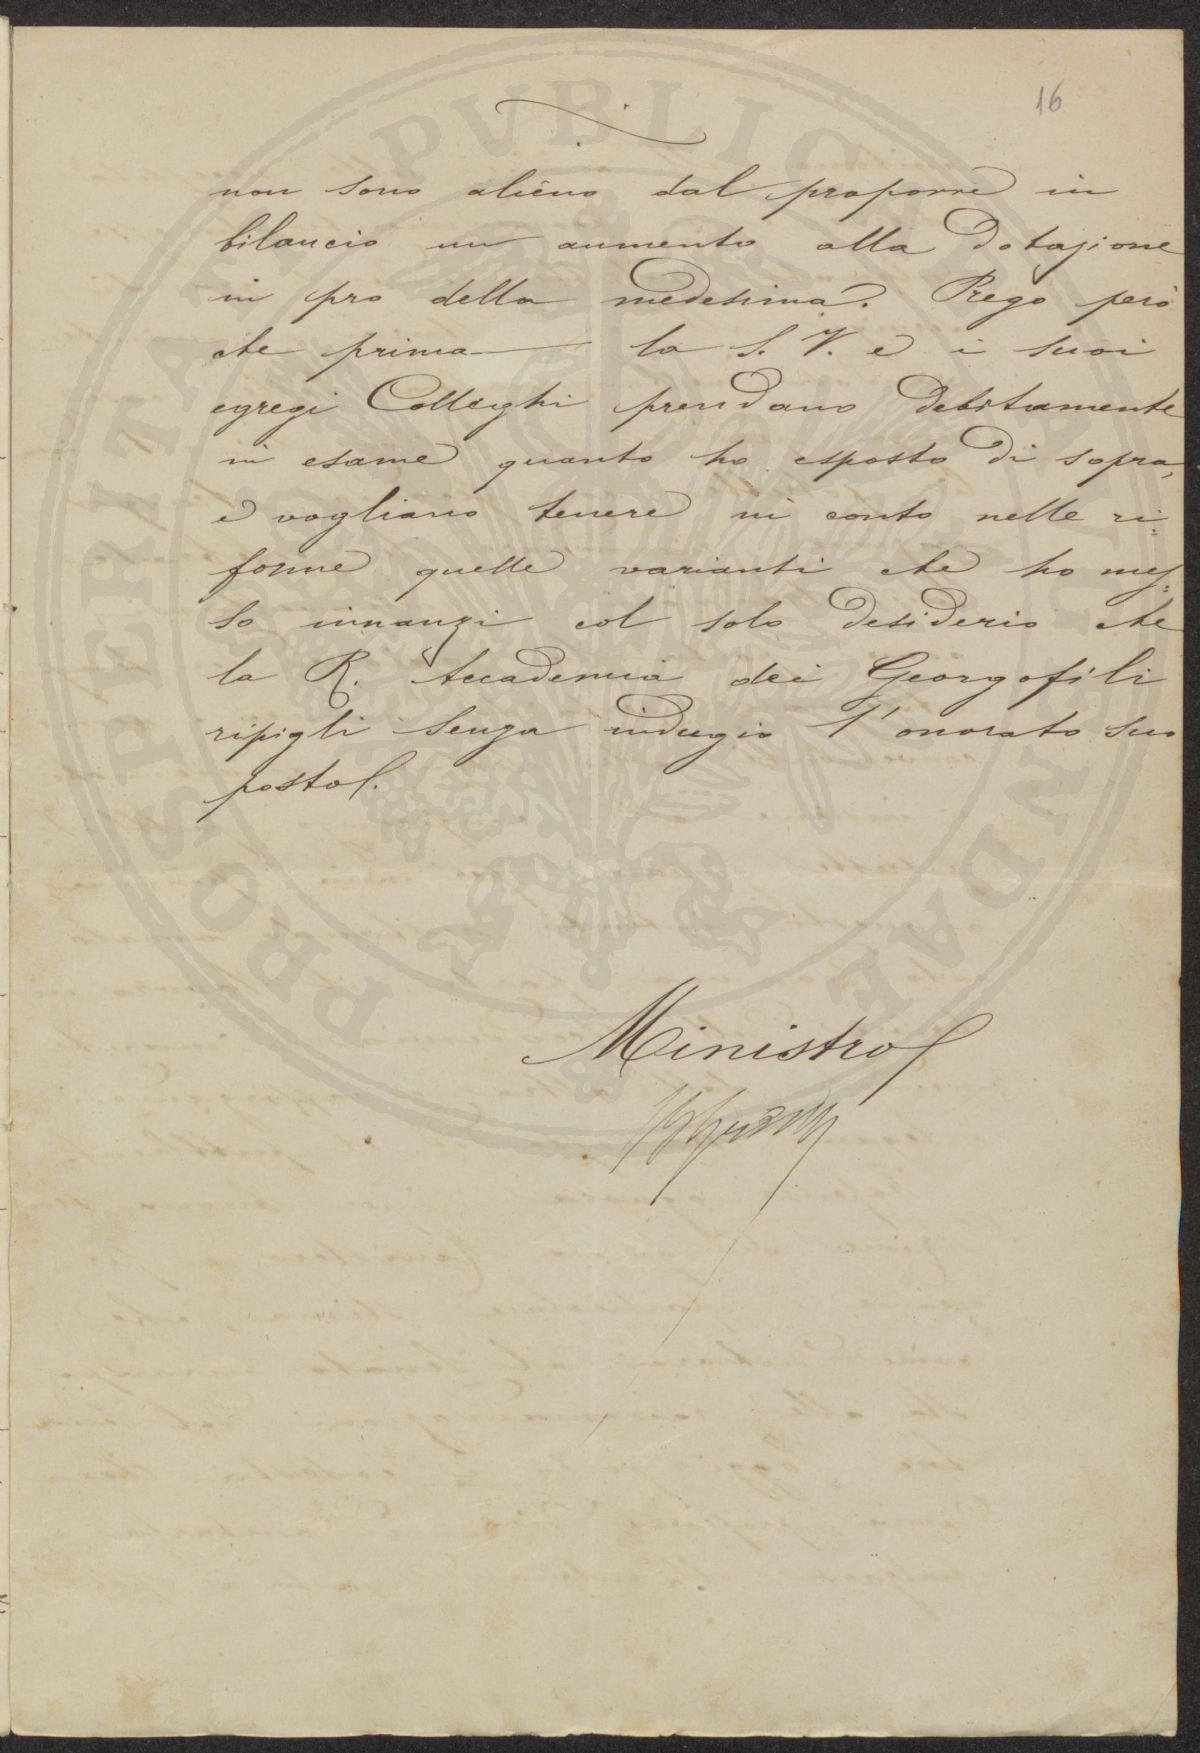 16
non sono alieno dal proporre in
bilancio un aumento alla dotazione
in pro della medesima. Prego però
che prima la S. V. e i suoi
egregi Colleghi prendano debitamente
in esame quanto ho esposto di sopra,
e vogliano tenere in conto nelle ri=
forme quelle varianti che ho mes=
so innanzi col solo desiderio che
la R. Accademia dei Georgofili
ripigli senza indugio l'onorato suo
posto.
Ministro
PROSPERITATI PVBLICAE AVGENDAE